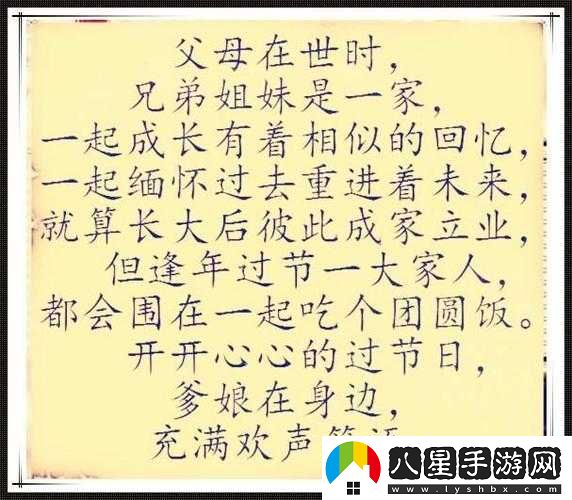 父母在世时，
兄弟姐妹是一家，
一起成长有着相似的回忆，
一起缅怀过去重进着未来，
就算长大后彼此成家立业，
但逢年过节一大家人，
都会围在一起吃个团圆饭。
开开心心的过节日，
爹娘在身边，
充满欢声
八星手游网
www.lyshbx.com